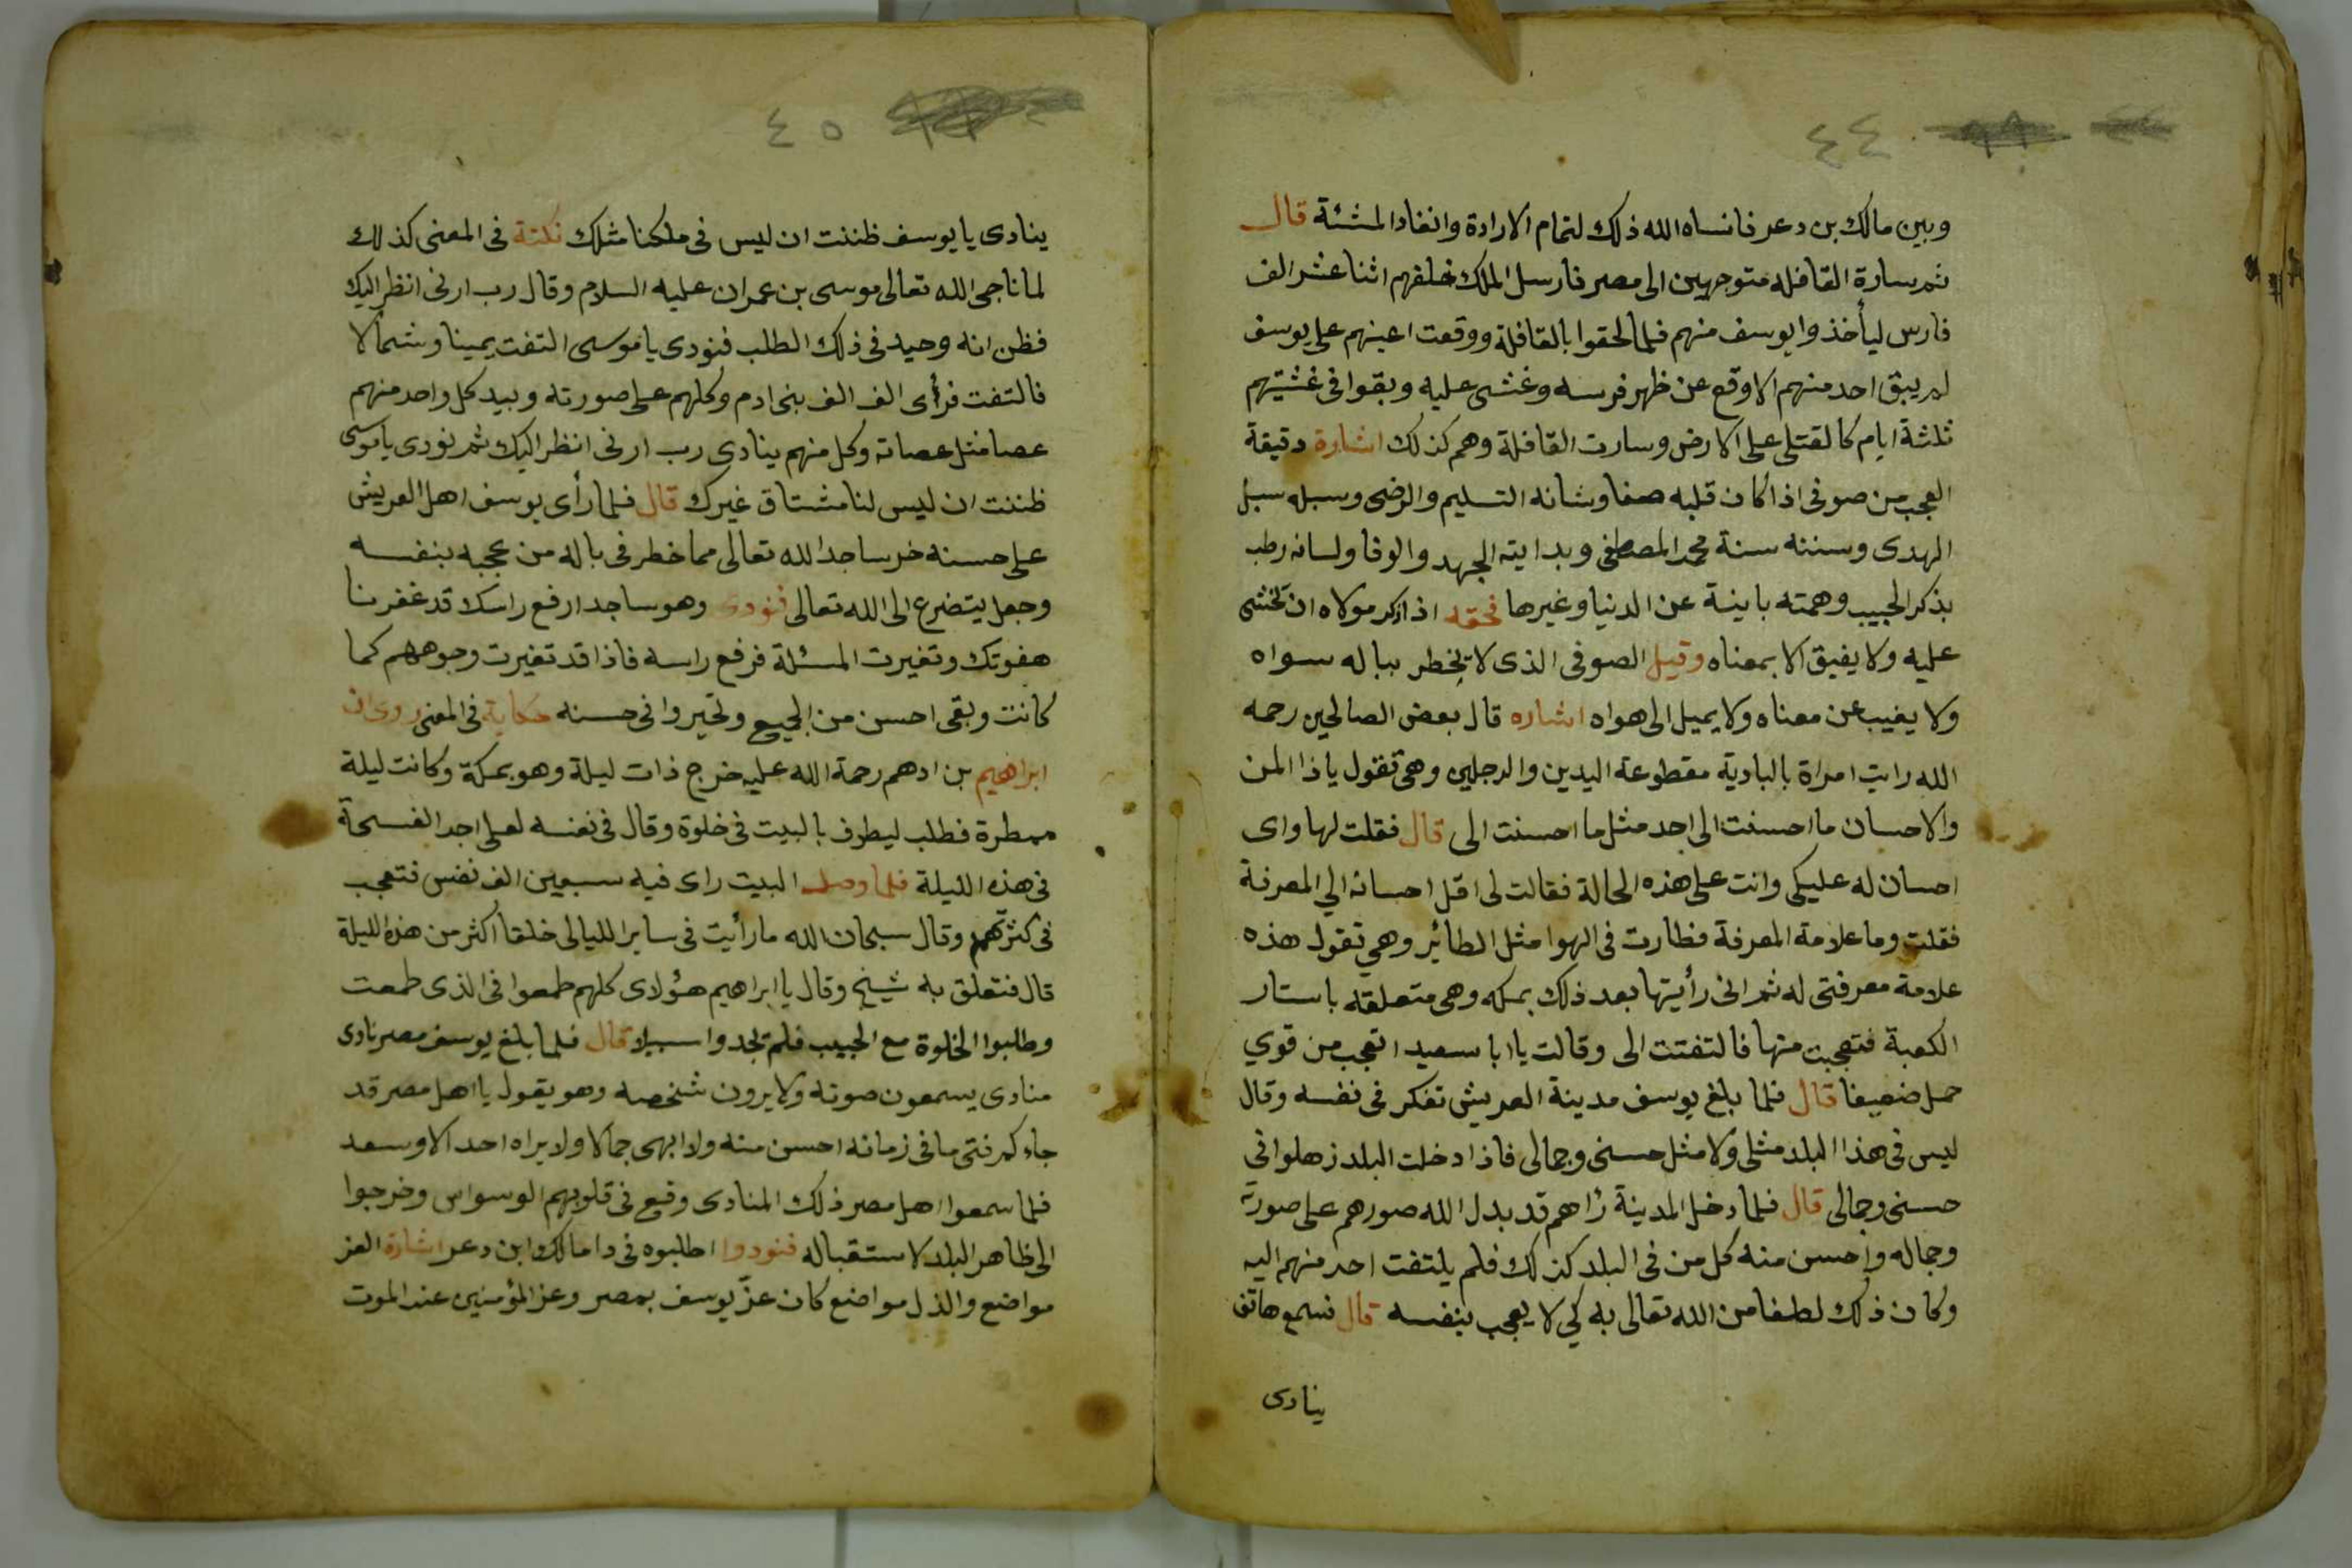 ٤٤
وبين مالك بن دعر فانساه الله ذلك لتمام الارادة وانفاد المشئة قال
ثم سارة القافله متوجهين الى مصر فارسل الملك خلفهم اثنا عشر الف
فارس ليأخذوا يوسف منهم فلما لحقوا بالقافلة ووقعت اعينهم على يوسف
لم يبق احد منهم الا وقع عن ظهر فرسه وغشى عليه وبقوا فى غشيتهم
ثلثة ايام كالقتلى على الارض وسارت القافلة وهم كذلك اشارة دقيقة
العجب من صوفى اذا كان قلبه صفا وشانه التسليم والرضى وسبله سبل
الهدى وسنته سنة محمد المصطفى وبدايته الجهد والوفا ولسانه رطب
بذكر الحبيب وهمته باينة عن الدنيا وغيرها فحقه اذا ذكر مولاه ان تخشى
عليه ولا يفيق الا بمعناه وقيل الصوفى الذى لا يخطر بباله سواه
ولا يغيب عن معناه ولا يميل الى هواه اشاره قال بعض الصالحين رحمه
الله رايت امراة بالبادية مقطوعة اليدين والرجلين وهى تقول ياذا المن
والاحسان ما احسنت الى احد مثل ما احسنت الى قال فقلت لها واى
احسان له عليكى وانت على هذه الحالة فقالت لى اقل احسانه الي المعرفة
فقلت وما علامة المعرفة فطارت فى الهوا مثل الطائر وهى تقول هذه
علامة معرفتى له ثم انى رأيتها بعد ذلك بمكه وهى متعلقه باستار
الكعبة فتعجبت منها فالتفتت الى وقالت يا ابا سعيد اتعجب من قوي
حمل ضعيفا قال فلما بلغ يوسف مدينة العريش تفكر فى نفسه وقال
ليس فى هذا البلد مثلى ولا مثل حسنى وجمالى فاذا دخلت البلد زهلوا فى
حسنى وجمالى قال فلما دخل المدينة رٱهم قد بدل الله صورهم على صورته
وجماله واحسن منه كل من فى البلد كذلك فلم يلتفت احد منهم اليه
وكان ذلك لطفا من الله تعالى به كي لا يعجب بنفسه قال فسمع هاتف
ينادى
٤٥
ينادى يا يوسف ظننت ان ليس فى ملكنا مثلك نكتة فى المعنى كذلك
لما ناجى الله تعالى موسى بن عمران عليه السلام وقال رب ارنى انظر اليك
فظن انه وحيد فى ذلك الطلب فنودى يا موسى التفت يمينا وشمالا
فالتفت فرأى الف الف بنى ادم وكلهم على صورته وبيد كل واحد منهم
عصا مثل عصاته وكل منهم ينادى رب ارنى انظر اليك ثم نودى يا موسى
ظننت ان ليس لنا مشتاق غيرك قال فلما رأى يوسف اهل العريش
على حسنه خر ساجدا لله تعالى مما خطر فى باله من عجبه بنفسه
وجعل يتضرع الى الله تعالى فنودى وهو ساجد ارفع راسك قد غفرنا
هفوتك وتغيرت المسئلة فرفع راسه فاذا قد تغيرت وجوههم كما
كانت وبقى احسن من الجميع وتحيروا فى حسنه حكاية فى المعنى روى ان
ابراهيم بن ادهم رحمة الله عليه خرج ذات ليلة وهو بمكة وكانت ليلة
ممطرة فطلب ليطوف بالبيت فى خلوة وقال فى نفسه لعلى اجد الفسحة
فى هذه الليلة فلما وصل البيت راى فيه سبعين الف نفس فتعجب
فى كثرتهم وقال سبحان الله ما رأيت فى ساير الليالى خلقا اكثر من هذه الليلة
قال فتعلق به شيخ وقال يا ابراهيم هؤلاى كلهم طمعوا فى الذى طمعت
وطلبوا الخلوة مع الحبيب فلم تجدوا سبيلا قال فلما بلغ يوسف مصر نادى
منادى يسمعون صوته ولا يرون شخصه وهو يقول يا اهل مصر قد
جاءكم فتى ما فى زمانه احسن منه ولا ابهى جمالا ولا يراه احد الا وسعد
فلما سمعوا اهل مصر ذلك المنادى وقع فى قلوبهم الوسواس وخرجوا
الى ظاهر البلد لاستقباله فنودوا اطلبوه فى دا مالك ابن دعر اشارة العز
مواضع والذل مواضع كان عزّ يوسف بمصر وعز المؤمنين عند الموت